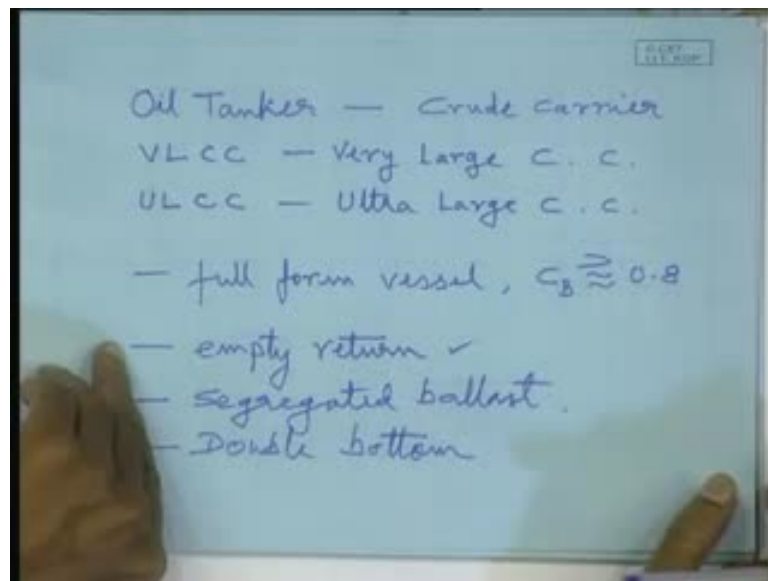 Oil Tanker — Crude carrier
VLCC — Very Large C. C.
ULCC — Ultra Large C. C.
— full form vessel, C_B ⪎ 0.8
— empty return ✓
— Segregated ballast.
— Double bottom